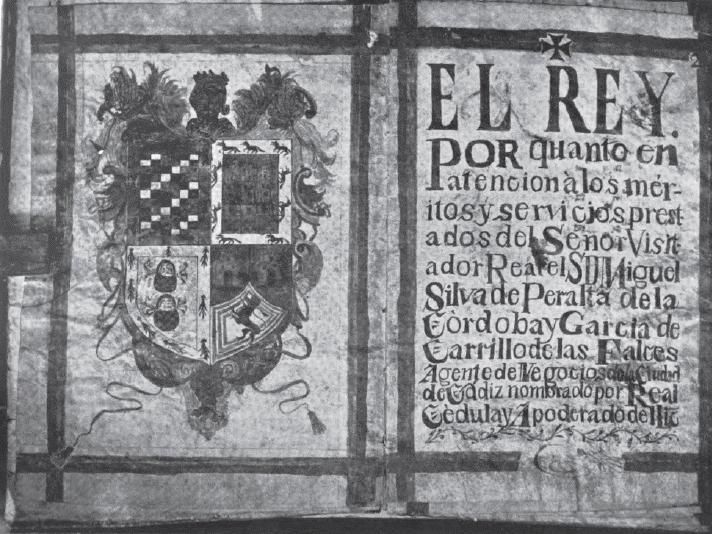 EL REY.
POR quanto en
atencion à los mér-
itos y servicios prest
ados del Señor Visit
ador Real el S D Miguel
Silva de Peralta de la
Còrdoba y Garcia de
Carrillo de las Falces
Agente de Negocios de la Ciudad
de Cadiz nombrado por Real
Cedula y Apoderado del